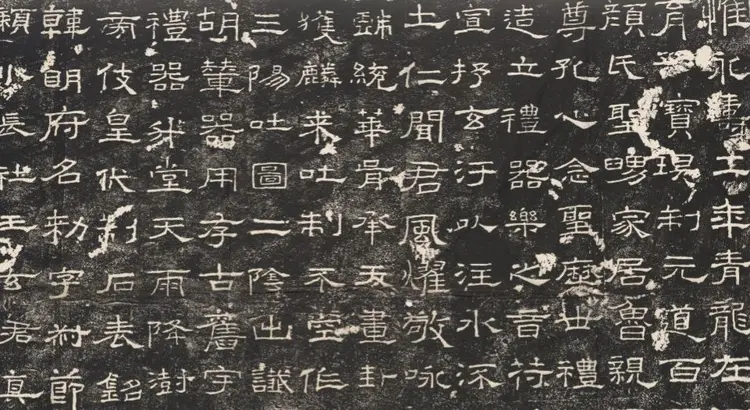 惟永壽二年青龍在
育寶制元道百
顏氏聖舅家居魯親
尊孔心念聖歷世禮
造立禮器樂之音符
宣抒玄汙以注水流
土仁聞君風燿敬咏
戲統華胥承天畫卦
獲麟來吐制不空作
三陽吐圖二陰出讖
胡輦器用存古舊宇
禮器升堂天雨降澍
旁伎皇代刊石表銘
韓明府名勑字叔節
潁川長社王玄君真